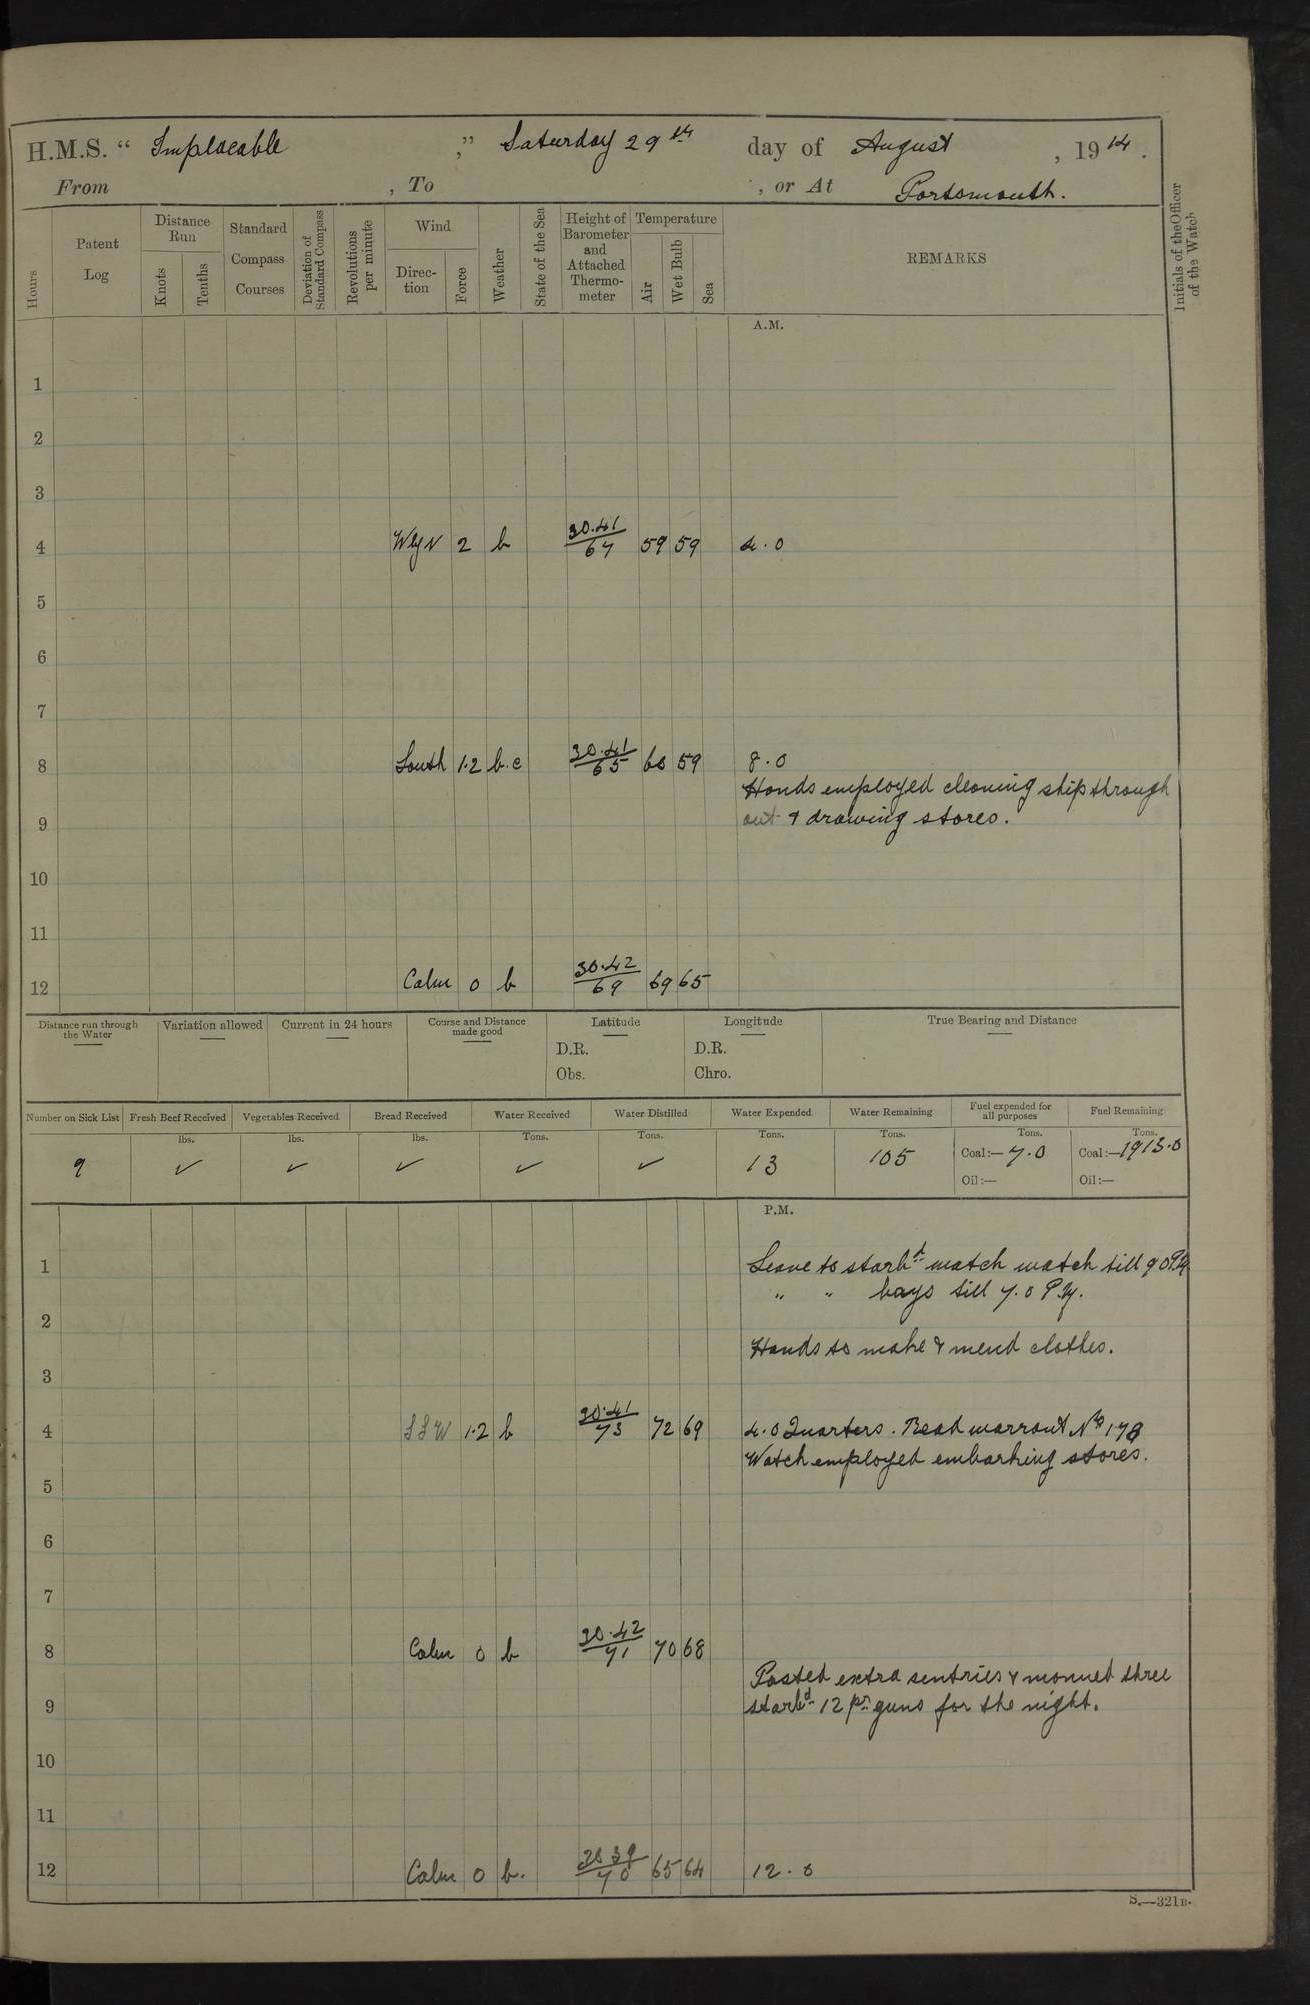 H.M.S. “ Implacable ,” Saturday 29th day of August , 1914 .
From , To , or At Portsmouth.
Hours
Patent Log
Distance Run
Knots
Tenths
Standard Compass Courses
Deviation of Standard Compass
Revolutions per minute
Wind
Direc-tion
Force
Weather
State of the Sea
Height of Barometer and Attached Thermo-meter
Temperature
Air
Wet Bulb
Sea
REMARKS
Initials of the Officer of the Watch
A.M.
1
2
3
4 WbyN 2 b 30.41/67 59 59 4.0
5
6
7
8 South 1.2 b.c 30.41/65 60 59 8.0
Hands employed cleaning ship through
9 out & drawing stores.
10
11
12 Calm 0 b 30.42/69 69 65
Distance run through the Water
Variation allowed
Current in 24 hours
Course and Distance made good
Latitude
D.R.
Obs.
Longitude
D.R.
Chro.
True Bearing and Distance
Number on Sick List
Fresh Beef Received
Vegetables Received
Bread Received
Water Received
Water Distilled
Water Expended
Water Remaining
Fuel expended for all purposes
Fuel Remaining
lbs. lbs. lbs. Tons. Tons. Tons. Tons. Tons. Tons.
9 ✓ ✓ ✓ ✓ ✓ 13 105 Coal:— 7.0 Coal:— 1913.0
Oil:— Oil:—
P.M.
1 Leave to starbd watch watch till 9 0 P.M.
" " boys till 7.0 P.M.
2
Hands to make & mend clothes.
3
4 SSW 1.2 b 30.41/73 72 69 4.0 Quarters. Read warrant No 178
Watch employed embarking stores.
5
6
7
8 Calm 0 b 30.42/71 70 68
Posted extra sentries & manned three
9 starbd 12 pr guns for the night.
10
11
12 Calm 0 b. 30 39/70 65 64 12.0
S.—321B.